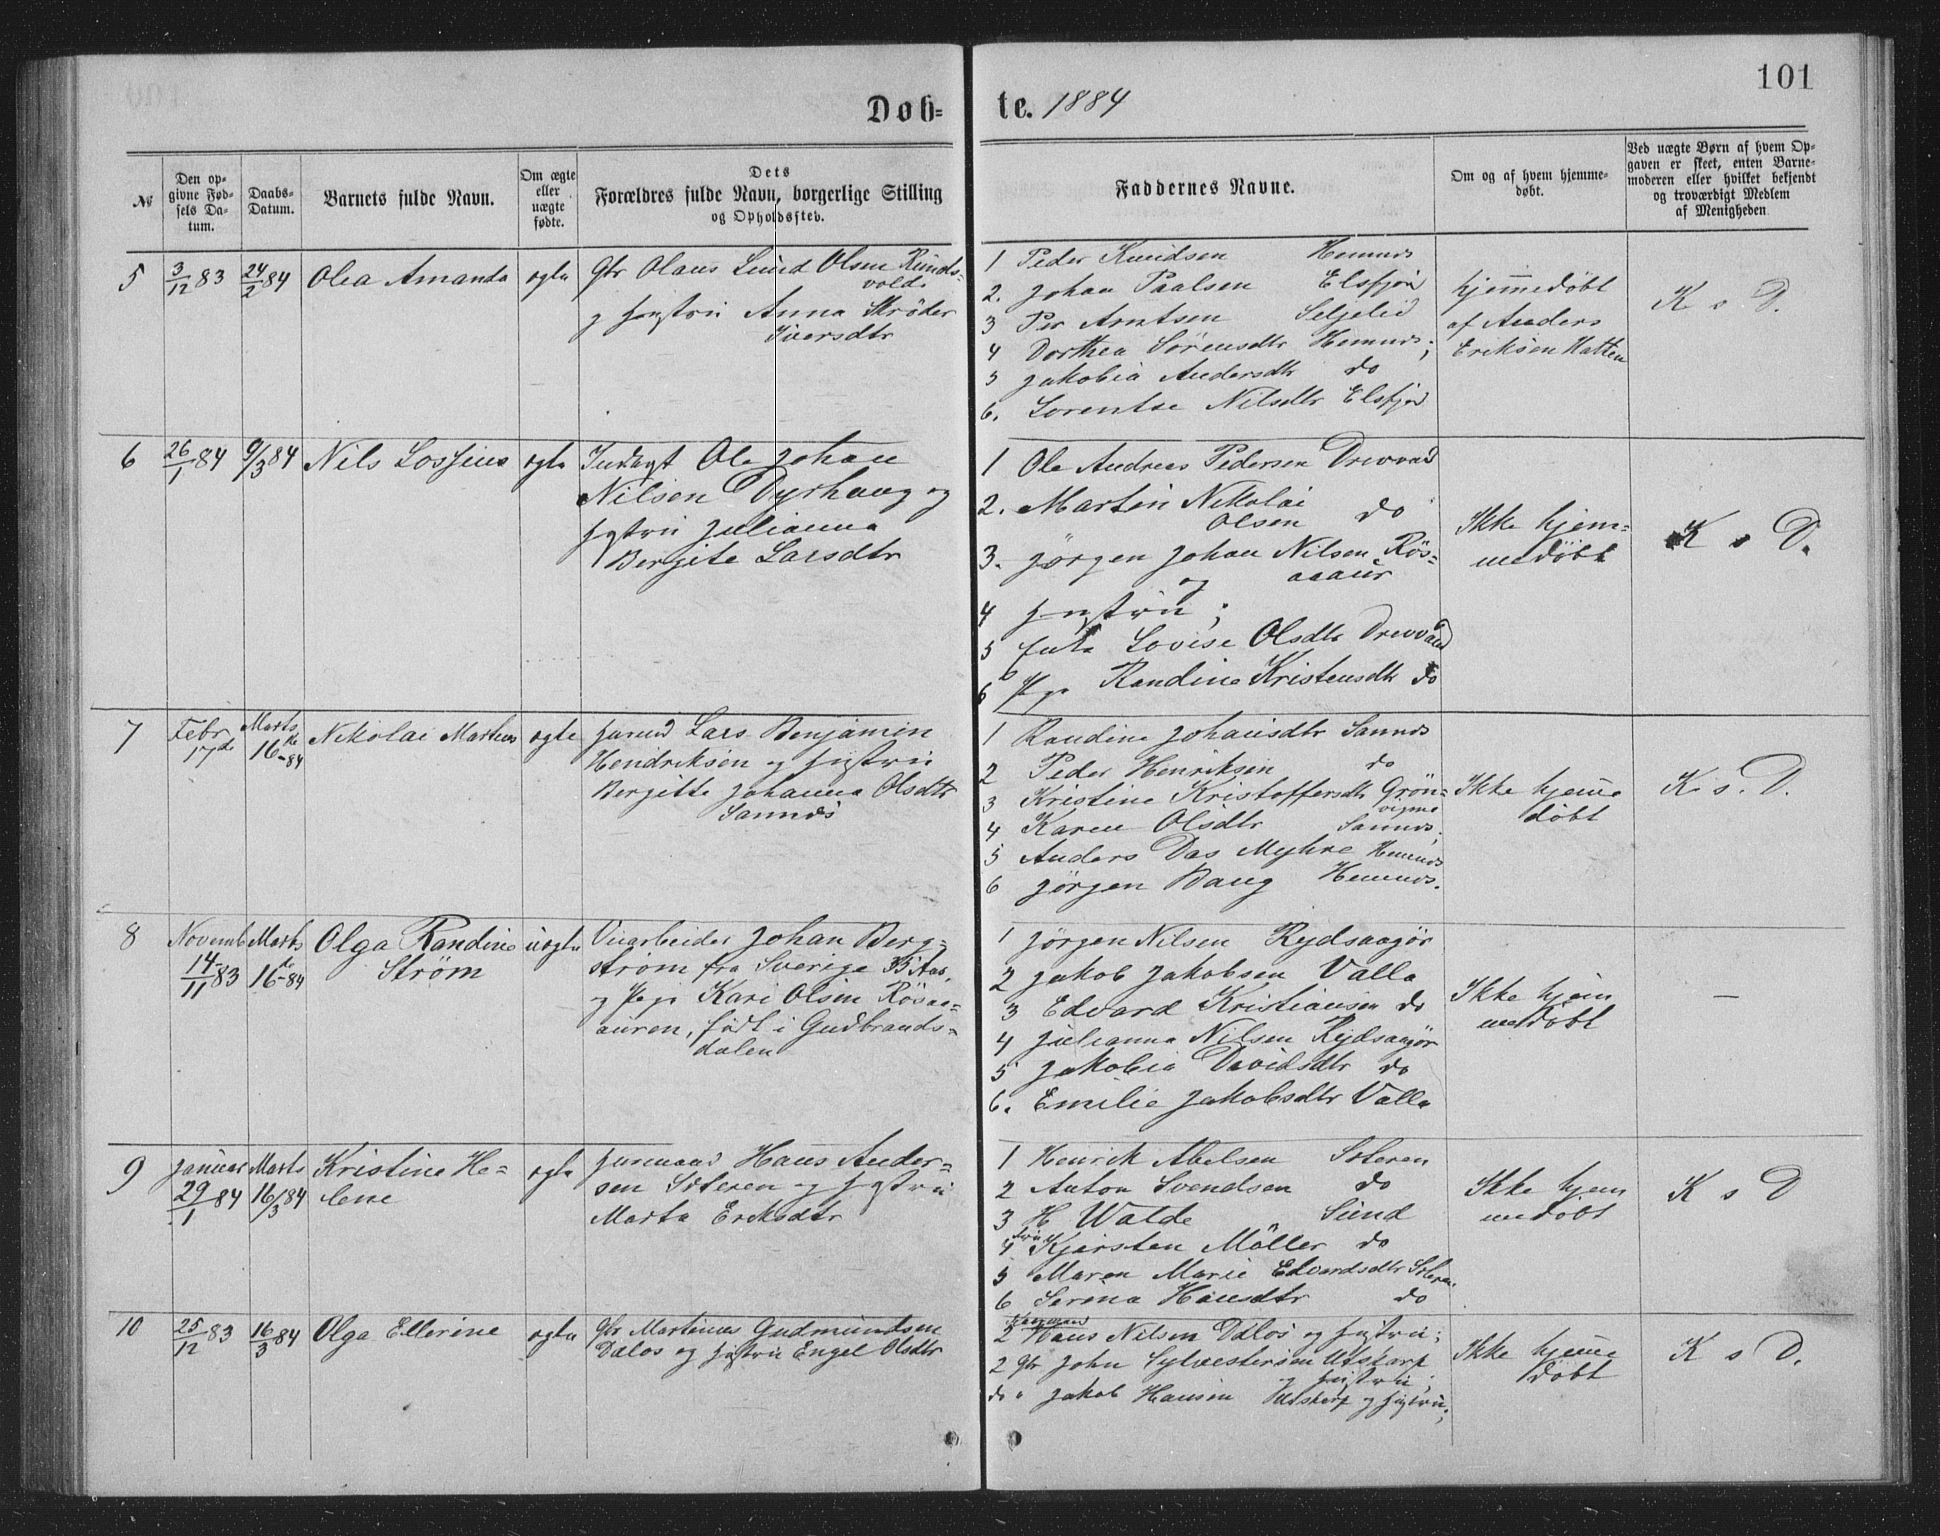 Døb= te. 1884
101
№
Den op-
givne Fød-
sels Da-
tum.
Daabs-
Datum.
Barnets fulde Navn.
Om ægte
eller
uægte
fødte.
Dets
Forældres fulde Navn, borgerlige Stilling
og Opholdssted.
Faddernes Navne.
Om og af hvem hjemme-
døbt.
Ved uægte Børn af hvem Op-
gaven er skeet, enten Barne-
moderen eller hvilket bekjendt
og troværdigt Medlem
af Menigheden
5
3/12 83
24/2 84
Olea Amanda
ægte
Gbr Olaus Lund Olsen Runds-
vold
og Hustru Anna Strøder
Iversdtr
1 Peder Knudsen Hemnes
2. Johan Paalsen Elsfjord
3 Per Arntsen Seljelid
4 Dorthea Sörensdtr Hemnes;
5 Jakobia Andersdtr do
6. Lorentse Nilsdtr Elsfjord
hjemmedøbt
af Anders
Eriksen Hatten
K s D.
6
26/1 84
9/3 84
Nils Lossius
ægte
Inderst Ole Johan
Nilsen Dyrhaug og
Hustru Julianna
Bergite Larsdtr
1 Ole Andreas Pedersen Drevvad
2. Martin Nikolai
Olsen do
3. Jörgen Johan Nilsen Rös-
aaaur
og
4 Hustru;
5 Enke Lovise Olsdtr Drevvad
6 Pge Randine Kristensdtr do
Ikke hjem-
medøbt
K s D.
7
Febr
17de
Marts
16de-84
Nikolai Martens
ægte
Lars Benjamin
Hendriksen og Hustru
Bergitte Johanna Olsdtr
Sannes
1 Randine Johansdtr Sannes
2 Peder Henriksen do
3 Kristine Kristoffersdtr Grön-
vigne
4 Karen Olsdtr Sannes.
5 Anders Das Myhre Hemnes
6 Jörgen Bang Hemnes.
Ikke hjemme
døbt
K. s. D.
8
Novemb
14/11 83
Marts
16de-84
Olga Randine
Strøm
uægte
Johan Berg-
strøm fra Sverige
og Pge Kari Olsen Rösaa-
auren, født i Gudbrands-
dalen
1 Jörgen Nilsen Rydsaagör
2 Jakob Jakobsen Valla
3 Edvard Kristiansen do
4 Julianna Nilsen Rydsaagör
5 Jakobia Davidsdtr do
6. Emilie Jakobsdtr Valla
Ikke hjem
medøbt
—
9
Januar
29/1 84
Marts
16/3 84
Kristine He-
lene
ægte
Hans Ander-
sen Soleren og Hustru
Marta Eriksdtr
1 Henrik Abelsen Soleren
2 Anton Svendsen do
3 H Walde Sund
4 Fru Kjersten Möller do
5 Maren Marie Edvardsdtr Soleren
6 Serina Hansdtr do
Ikke hjem
medøbt
K s D
10
25/12 83
16/3 84
Olga Ellerine
ægte
Gbr Martinus Gudmundsen
Dalos og Hustru Engel Olsdtr
2 Hans Nilsen Dalos og Hustru;
2 Gbr John Sylvestersen Utskarp
og Hustru;
do " Jakob Hansen Utskarp og Hustru;
Ikke hjemme
døbt
K s D.